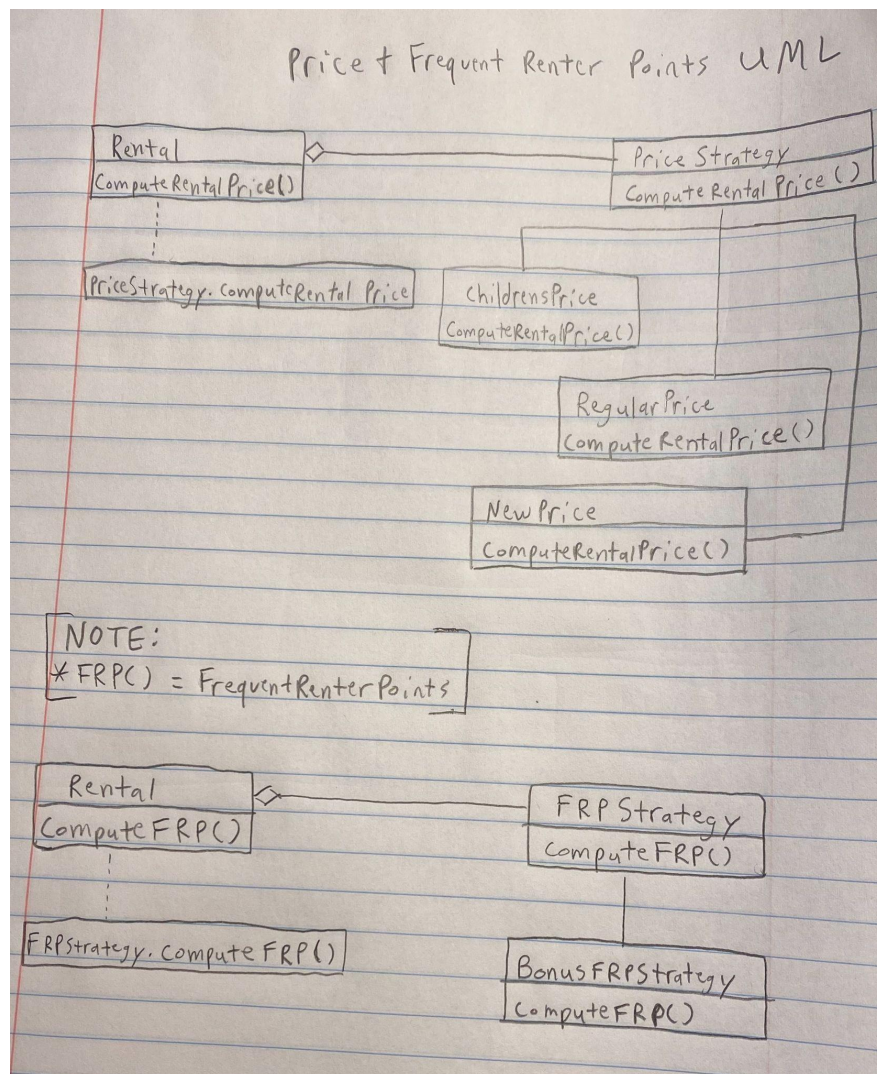 Price + Frequent Renter Points UML
Rental
ComputeRentalPrice()
Price Strategy
Compute Rental Price()
PriceStrategy.computeRental Price
ChildrensPrice
ComputeRentalPrice()
RegularPrice
Compute RentalPrice()
New Price
ComputeRentalPrice()
NOTE:
* FRP() = FrequentRenterPoints
Rental
Compute FRP()
FRP Strategy
Compute FRP()
FRPStrategy.Compute FRP()
BonusFRPStrategy
ComputeFRP()